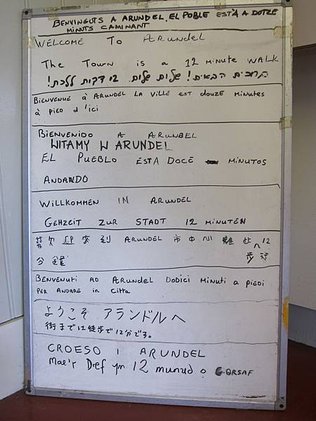 BENVINGUTS A ARUNDEL, EL POBLE ESTÀ A DOTZE
MINUTS CAMINANT
WELCOME TO ARUNDEL
THE TOWN IS A 12 MINUTE WALK
ברוכים הבאים! שלום שלום 12 דקות ללכת!
BIENVENUE À ARUNDEL LA VILLE EST DOUZE MINUTES
À PIED D'ICI
BIENVENIDO A ARUNDEL
WITAMY W ARUNDEL
EL PUEBLO ESTA DOCE MINUTOS
ANDANDO
WILLKOMMEN IN ARUNDEL
GEHZEIT ZUR STADT 12 MINUTEN
ARUNDEL 市中心 12
分
BENVENUTI AD ARUNDEL DODICI MINUTI A PIEDI
PER ANDARE IN CITTA
ようこそ アランドル へ
街まで12徒歩で12分です。
CROESO I ARUNDEL
Mae'r Dref yn 12 munud o GORSAF